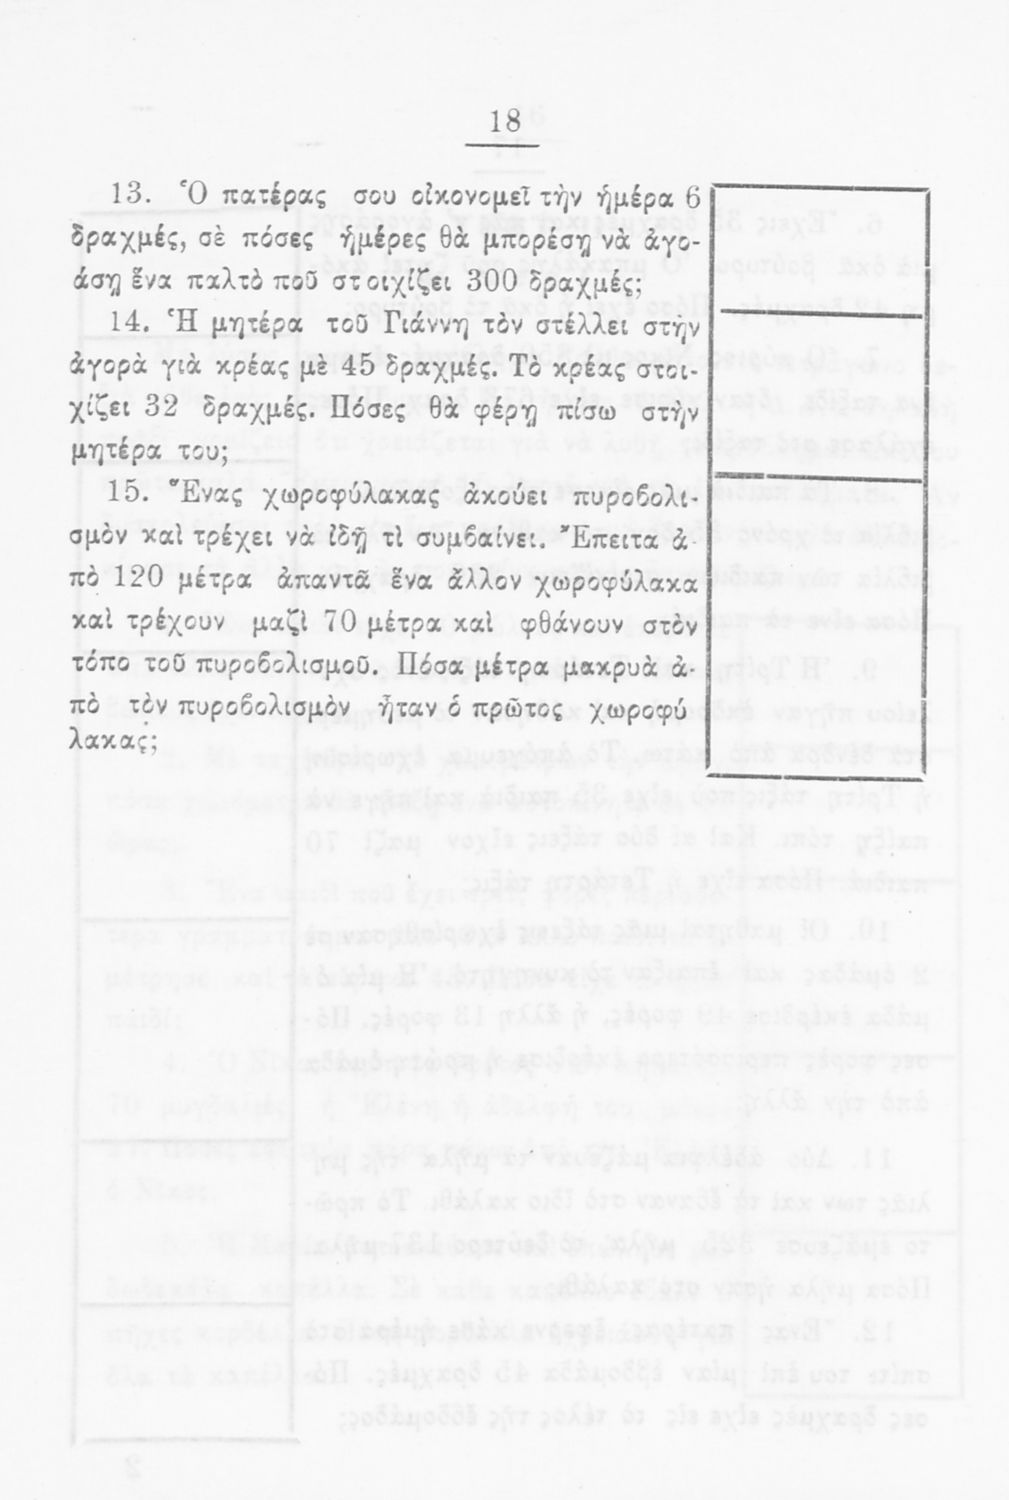 18
13. Ὁ πατέρας σου οἰκονομεῖ τὴν ἡμέρα 6
δραχμές, σὲ πόσες ἡμέρες θὰ μπορέσῃ νὰ ἀγο-
άσῃ ἕνα παλτὸ ποῦ στοιχίζει 300 δραχμές;
14. Ἡ μητέρα τοῦ Γιάννη τὸν στέλλει στὴν
ἀγορὰ γιὰ κρέας μὲ 45 δραχμές. Τὸ κρέας στοι-
χίζει 32 δραχμές. Πόσες θὰ φέρῃ πίσω στὴν
μητέρα του;
15. Ἕνας χωροφύλακας ἀκούει πυροβολι-
σμὸν καὶ τρέχει νὰ ἰδῇ τὶ συμβαίνει. Ἔπειτα ἀ-
πὸ 120 μέτρα ἀπαντᾷ ἕνα ἄλλον χωροφύλακα
καὶ τρέχουν μαζὶ 70 μέτρα καὶ φθάνουν στὸν
τόπο τοῦ πυροβολισμοῦ. Πόσα μέτρα μακρυὰ ἀ-
πὸ τὸν πυροβολισμὸν ἦταν ὁ πρῶτος χωροφύ
λακας;